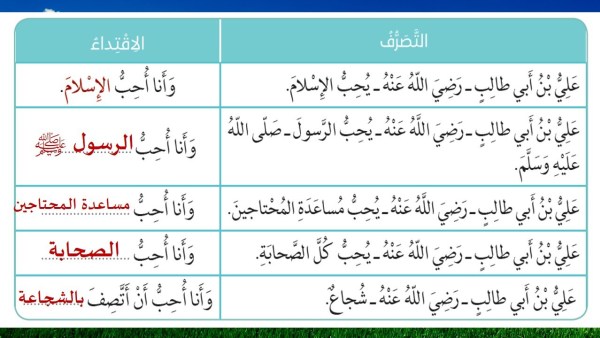 التَّصَرُّفُ
الِاقْتِداءُ
عَلِيُّ بْنُ أَبي طالِبٍ ـ رَضِيَ اللّهُ عَنْهُ ـ يُحِبُّ الإِسْلامَ.
وَأَنا أُحِبُّ الإِسْلامَ.
عَلِيُّ بْنُ أَبي طالِبٍ ـ رَضِيَ اللَّهُ عَنْهُ ـ يُحِبُّ الرَّسولَ ـ صَلّى اللّهُ
عَلَيْهِ وَسَلَّمَ.
وَأَنا أُحِبُّ الرسول ﷺ
عَلِيُّ بْنُ أَبي طالِبٍ ـ رَضِيَ اللَّهُ عَنْهُ ـ يُحِبُّ مُساعَدَةَ المُحْتاجينَ.
وَأَنا أُحِبُّ مساعدة المحتاجين
عَلِيُّ بْنُ أَبي طالِبٍ ـ رَضِيَ اللّهُ عَنْهُ ـ يُحِبُّ كُلَّ الصَّحابَةِ.
وَأَنا أُحِبُّ الصحابة
عَلِيُّ بْنُ أَبي طالِبٍ ـ رَضِيَ اللّهُ عَنْهُ ـ شُجاعٌ.
وَأَنا أُحِبُّ أَنْ أَتَّصِفَ بالشجاعة